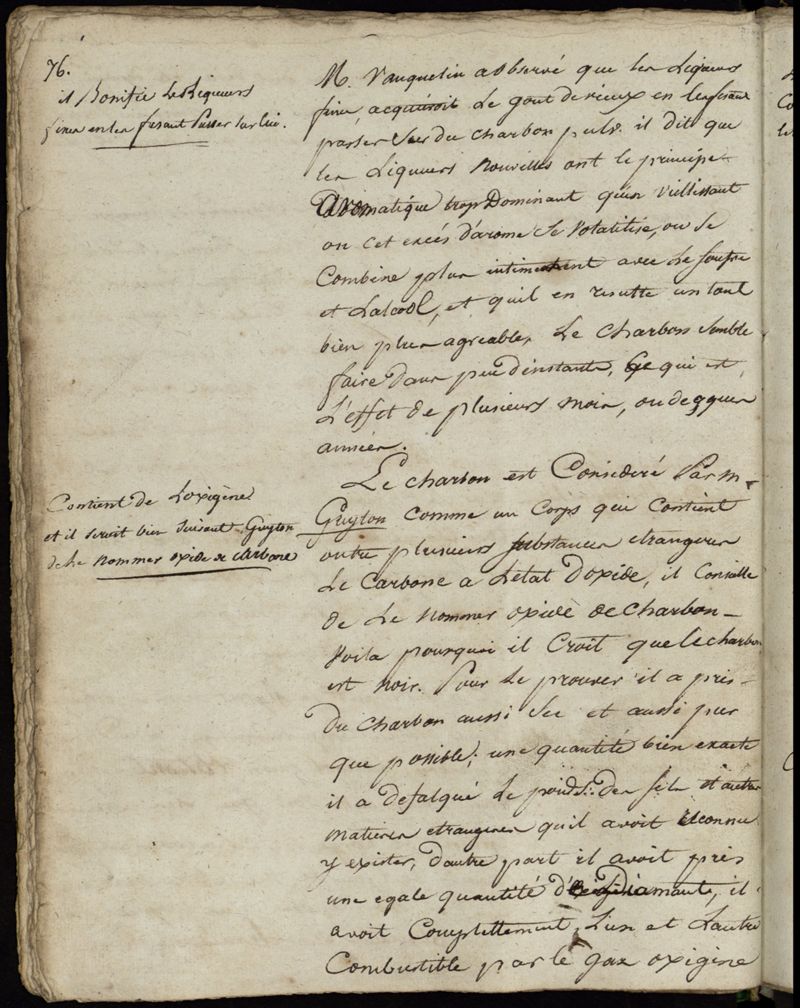 76.
il Bonifie Les Liqueurs
fines en les fesant Passer sur lui.
M. Vauquelin a observé que les Liqueurs
fines acquéroit Le gout de vieux en les fesant
passer sur du charbon pulv. il dit que
les Liqueurs nouvelles ont le principe
aromatique trop Dominant qu'en viellissant
ou cet excés d'arome se volatilise, ou se
Combine plus intimement avec Le
et Lalcool, et quil en resulte un tout
bien plus agreable, Le charbon semble
faire dans peu d'instants, Ce qui est
L'effet de plusieurs mois, ou de qques
années.
Contient de Loxigène
et il seroit bien suivant Guyton
de le nommer oxide de carbone
Le charbon est Consideré Par m.
Guyton comme un Corps qui Contient
outre plusieurs substances etrangeres
Le Carbone a Letat D'oxide, il Conseille
de Le nommer oxide de charbon
Voila pourquoi il Croit que le charbon
est noir. Pour Le prouver il a pris
Du charbon aussi sec et aussi pur
que possible; une quantité bien exacte
il a defalqué Le poids: des sels et autres
matieres etrangeres quil avoit reconnu
y exister, dautre part il avoit pris
une egale quantité Diamants, il
avoit Complettement, Lun et Lautre
Combustible par le gaz oxigène